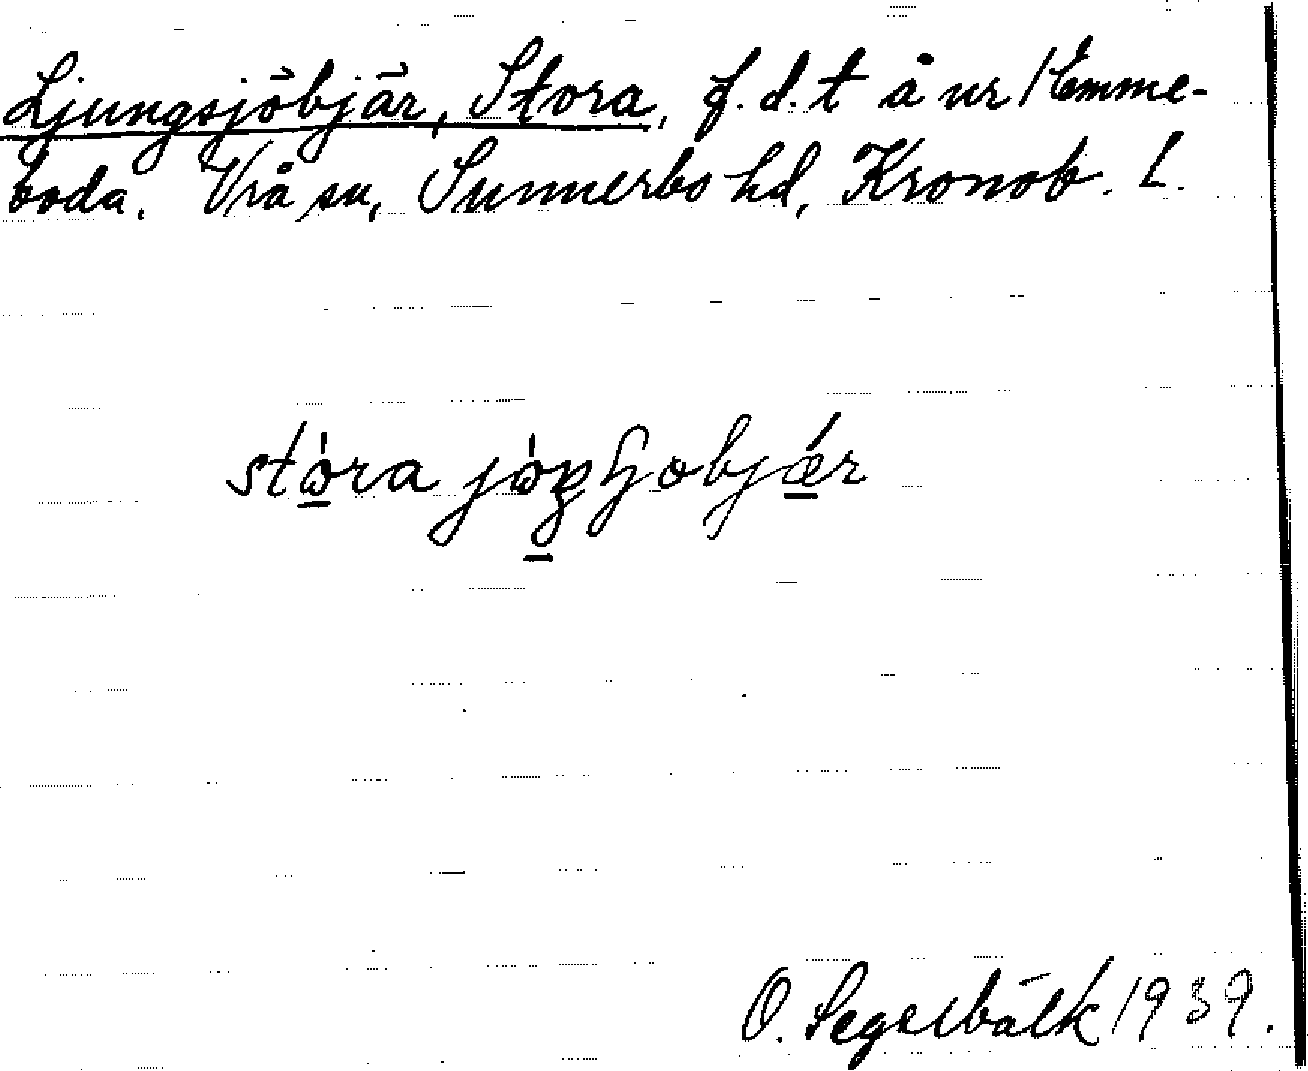 Ljungsjöbjär, Stora, f.d. t å ur Hemme-
boda. Vrå sn, Sunnerbo hd, Kronob. L.
stώ̲ra jώ̲ŋɧobjǽ̲r
O. Segelbälk 1939.